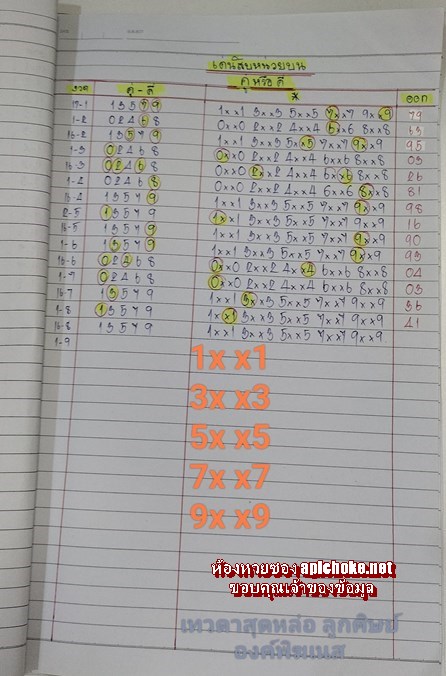 เด่นสิบหน่วยบน
งวด คู่-คี่ คู่หรือคี่ ออก
17-1 13579 1xx1 3xx3 5xx5 7xx7 9xx9 79
1-2 02468 0xx0 2xx2 4xx4 6xx6 8xx8 63
16-2 13579 1xx1 3xx3 5xx5 7xx7 9xx9 95
1-3 02468 0xx0 2xx2 4xx4 6xx6 8xx8 03
16-3 02468 0xx0 2xx2 4xx4 6xx6 8xx8 26
1-4 02468 0xx0 2xx2 4xx4 6xx6 8xx8 81
16-4 13579 1xx1 3xx3 5xx5 7xx7 9xx9 98
2-5 13579 1xx1 3xx3 5xx5 7xx7 9xx9 16
16-5 13579 1xx1 3xx3 5xx5 7xx7 9xx9 90
1-6 13579 1xx1 3xx3 5xx5 7xx7 9xx9 93
16-6 02468 0xx0 2xx2 4xx4 6xx6 8xx8 04
1-7 02468 0xx0 2xx2 4xx4 6xx6 8xx8 03
16-7 13579 1xx1 3xx3 5xx5 7xx7 9xx9 36
1-8 13579 1xx1 3xx3 5xx5 7xx7 9xx9 41
16-8 13579 1xx1 3xx3 5xx5 7xx7 9xx9
1-9
1x x1
3x x3
5x x5
7x x7
9x x9
ห้องหวยซอง apichoke.net
ขอบคุณเจ้าของข้อมูล
เทวดาสุดหล่อ ลูกศิษย์
องค์พิฆเนส